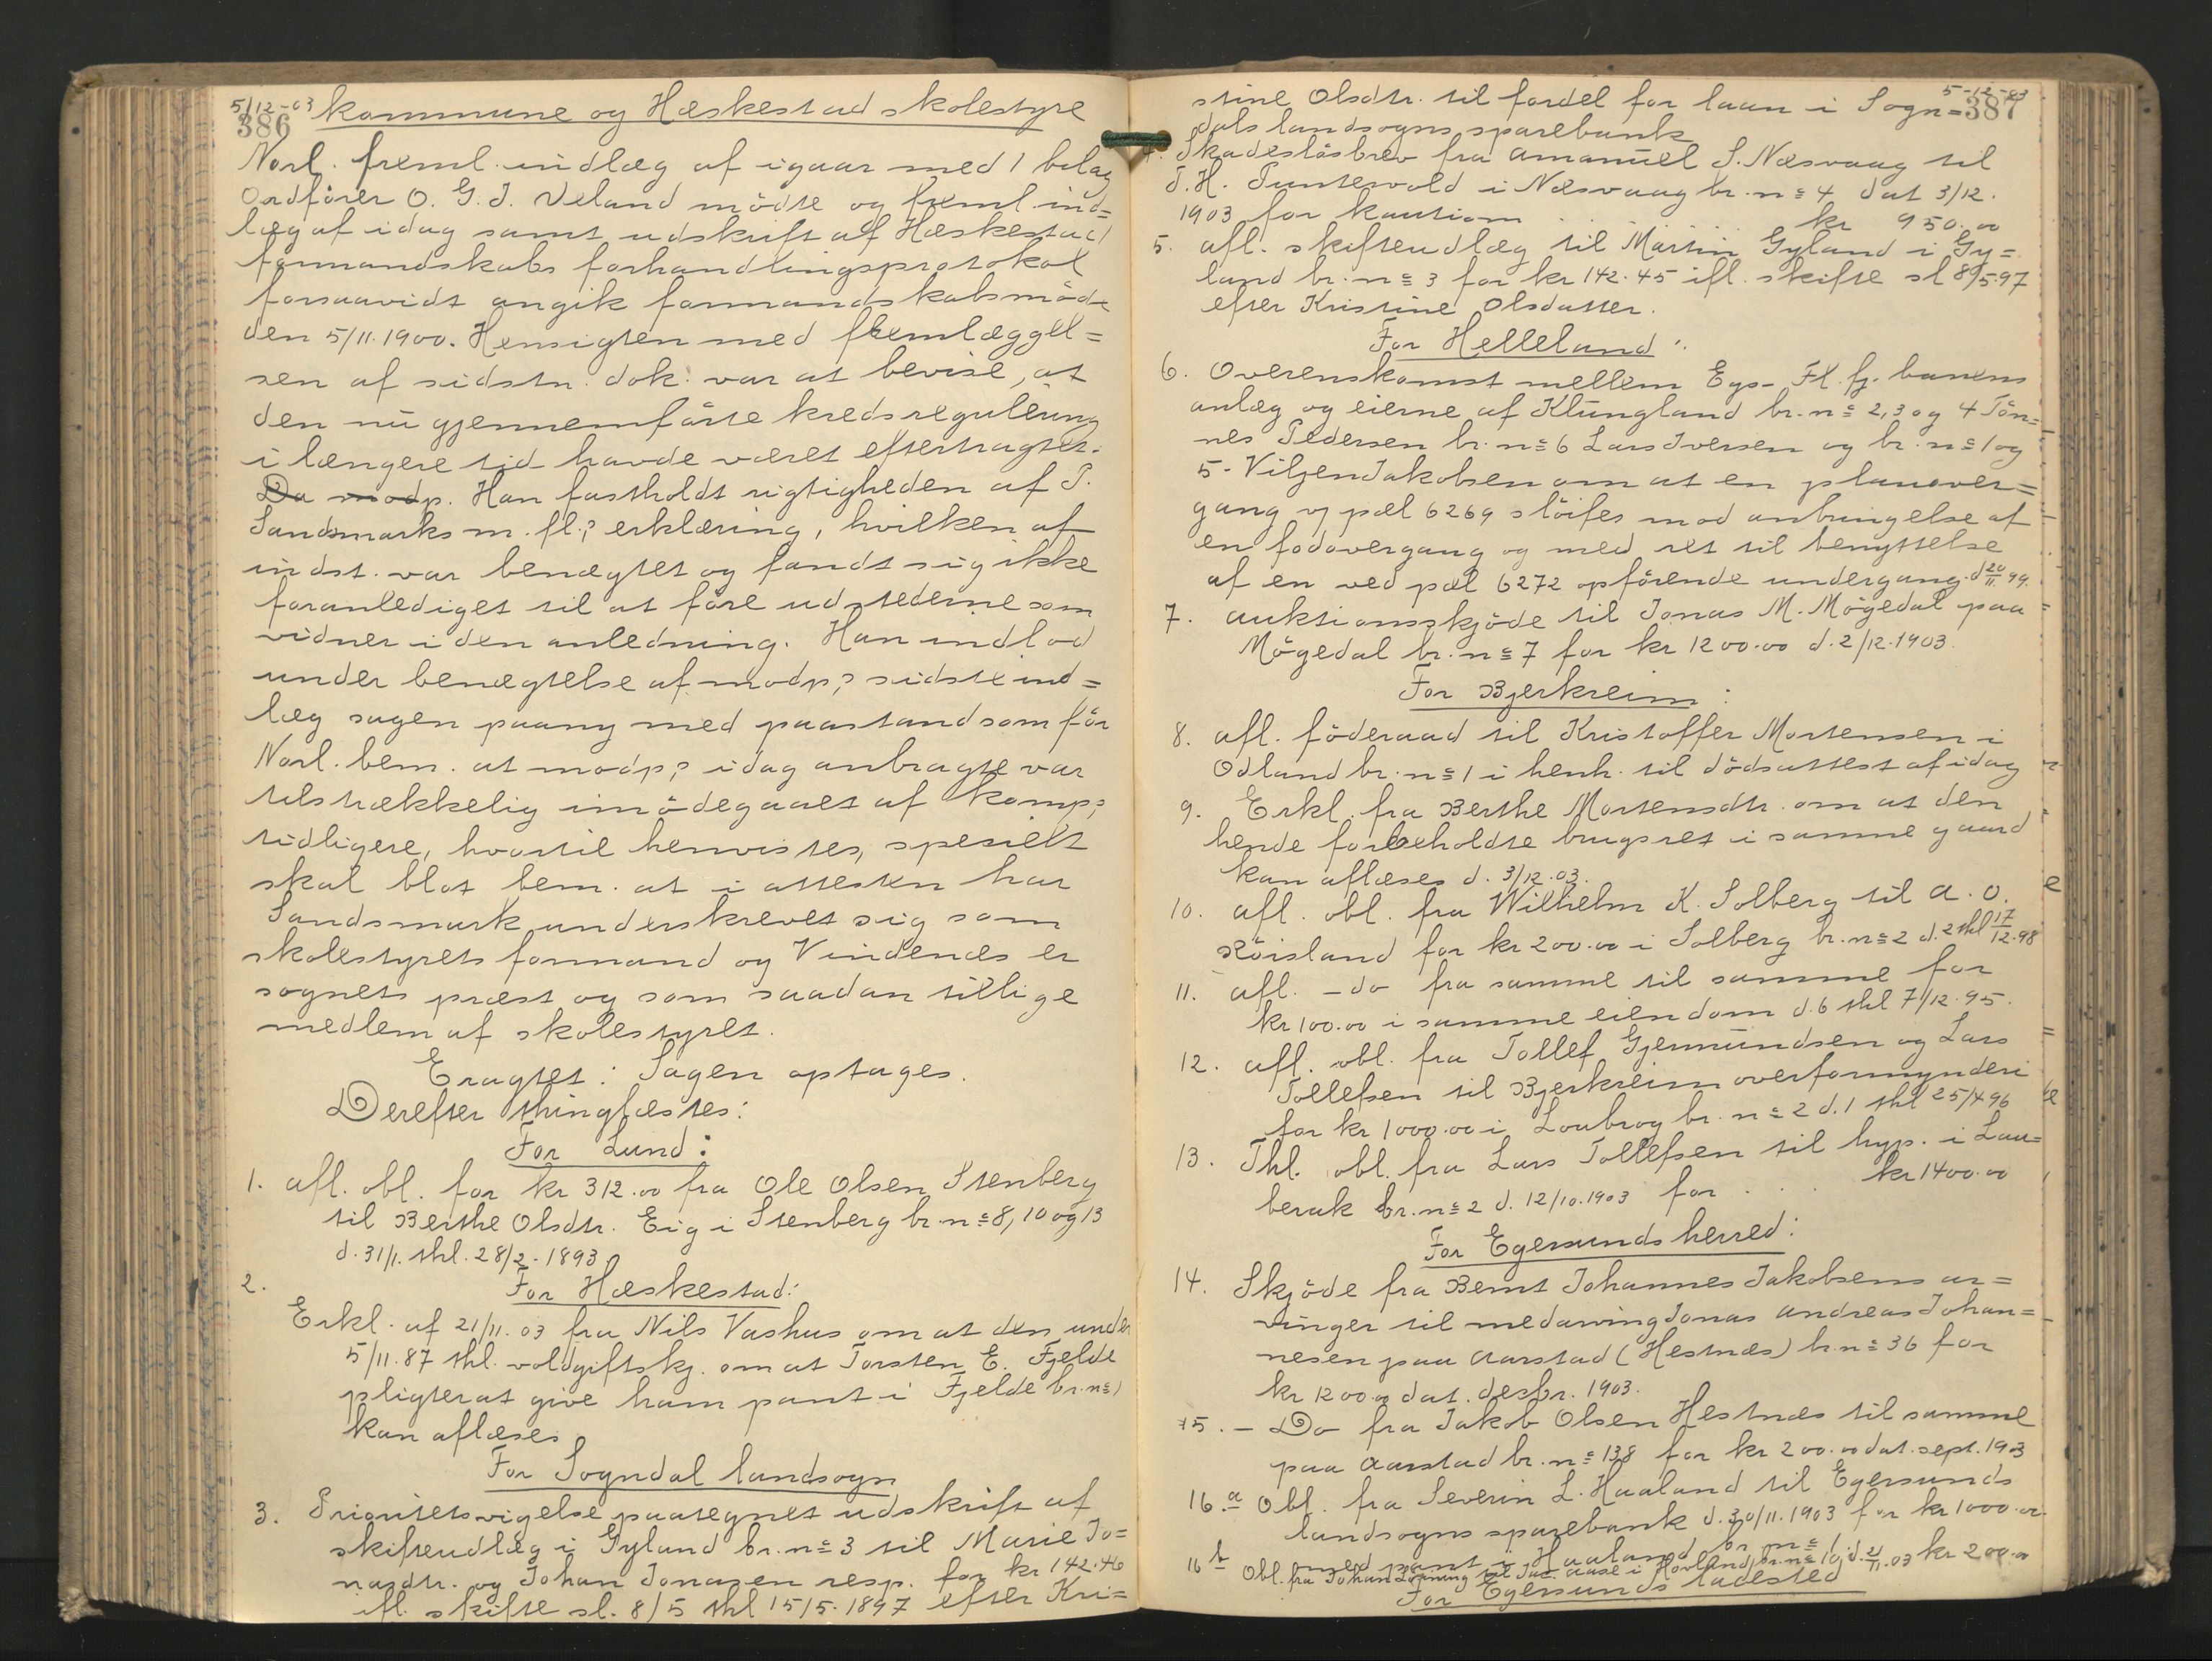 5/12-03
386
kommune og Heskestad skolestyre
Norl. freml. indlæg af igaar med 1 bilag
Ordfører O. G. I. Veland mödte og freml. ind=
læg af idag samt udskrift af Heskestad
formandskabs forhandlingsprotokol
forsaavidt angik formandskabsmöde
den 5/11.1900. Hensigten med fremlæggel=
sen af sidstn. dok. var at bevise, at
den nu gjennemförte kredsregulering
i længere tid havde været eftertragtet.
Da modp. Han fastholdt rigtigheden af T.
Sandsmarks m. fl.s erklæring, hvilken af
indst. var benægtet og fandt sig ikke
foranlediget til at före udstederne som
vidner i den anledning. Han indlod
under benægtelse af modp.s sidste ind=
læg sagen paany med paastand som för
Norl. bem. at modp.s idag anbragte var
tilstrækkelig imödegaaet af komp.s
tidligere, hvortil henvistes, spesielt
skal blot bem. at i attesten har
Sandsmark underskrevet sig som
skolestyrets formand og Vindenes er
sognets prest og som saadan tillige
medlem af skolestyret.
Eragtet: Sagen optages.
Derefter thinglæstes:
For Lund:
1. afl. obl. for kr 312.00 fra Ole Olsen Stenberg
til Berthe Olsdtr. Eig i Stenberg br. nº 8, 10 og 13
d. 31/1. thl. 28/2.1893
2.
For Heskestad:
Erkl. af 21/11.03 fra Nils Vashus om at den under
5/11.87 thl. voldgiftskj. om at Torsten E. Fjelde
pligter at give ham pant i Fjelde br. nº 1
kan aflæses
For Sogndal landsogn
3. Prioritetsvigelse paategnet udskrift af
skifteudlæg i Gyland br. nº 3 til Marie Jo=
nasdtr. og Johan Jonasen resp. for kr 142.46
ifl. skifte sl. 8/5 thl 15/5.1897 efter Kri=
5-12-03
387
stine Olsdtr. til fordel for laan i Sogn=
dals landsogns sparebank
4. Skadeslösbrev fra Amanuel S. Næsvaag til
T. H. Puntervold i Næsvaag br. nº 4 dat 3/12.
1903 for kaution . . . . . kr 950.00
5. afl. skifteudlæg til Martin Gyland i Gy=
land br. nº 3 for kr 142.45 ifl. skifte sl 8/5.97
efter Kristine Olsdatter.
For Helleland:
6. Overenskomst mellem Egs- Fl. fj. banens
anlæg og eierne af Klungland br. nº 2, 3 og 4 Tön=
nes Pedersen br. nº 6 Lars Iversen og br. nº 1 og
5 - Viljen Jakobsen om at en planover=
gang v pæl 6269 slöifes mod anbringelse af
en fodovergang og med ret til benyttelse
af en ved pæl 6272 opförende undergang d 20/11 99.
7. auktionsskjöde til Jonas M. Mögedal paa
Mögedal br. nº 7 for kr 1200.00 d. 2/12.1903.
For Bjerkreim:
8. afl. föderaad til Kristoffer Mortensen i
Odland br. nº 1 i henh. til dödsattest af idag
9. Erkl. fra Berthe Mortensdtr. om at den
hende forbeholdte brugsret i samme gaard
kan aflæses d. 3/12.03.
10. afl. obl. fra Wilhelm K. Solberg til A. O.
Röisland for kr 200.00 i Solberg br. nº 2 d. 2 thl 17/12.98
11. afl. - do fra samme til samme for
kr 100.00 i samme eiendom d. 6 thl 7/12.95.
12. afl. obl. fra Tollef Gjermundsen og Lars
Tollefsen til Bjerkreim overformynderi
for kr 1000.00 i Loubrog br. nº 2 d. 1 thl 25/4 96
13. Thl. obl. fra Lars Tollefsen til hyp. i Lau=
berak br. nº 2 d. 12/10.1903 for . . . kr 1400.00
For Egersunds herred:
14. Skjöde fra Bernt Johannes Jakobsens ar=
vinger til medarving Jonas Andreas Johan=
nesen paa Aarstad (Hestnes) br. nº 36 for
kr 1200.00 dat. desbr. 1903.
15. - Do fra Jakob Olsen Hestnes til samme
paa Aarstad br. nº 138 for kr 200.00 dat. sept. 1903
16.a Obl. fra Severin L. Haaland til Egersunds
landsogns sparebank d. 30/11.1903 for kr 1000.00.
med pant i Haaland br nº 1.
16b Obl. fra Johan Aase i Hovland br. nº 10 d. 21/11.03 kr 200.00
For Egersunds ladested